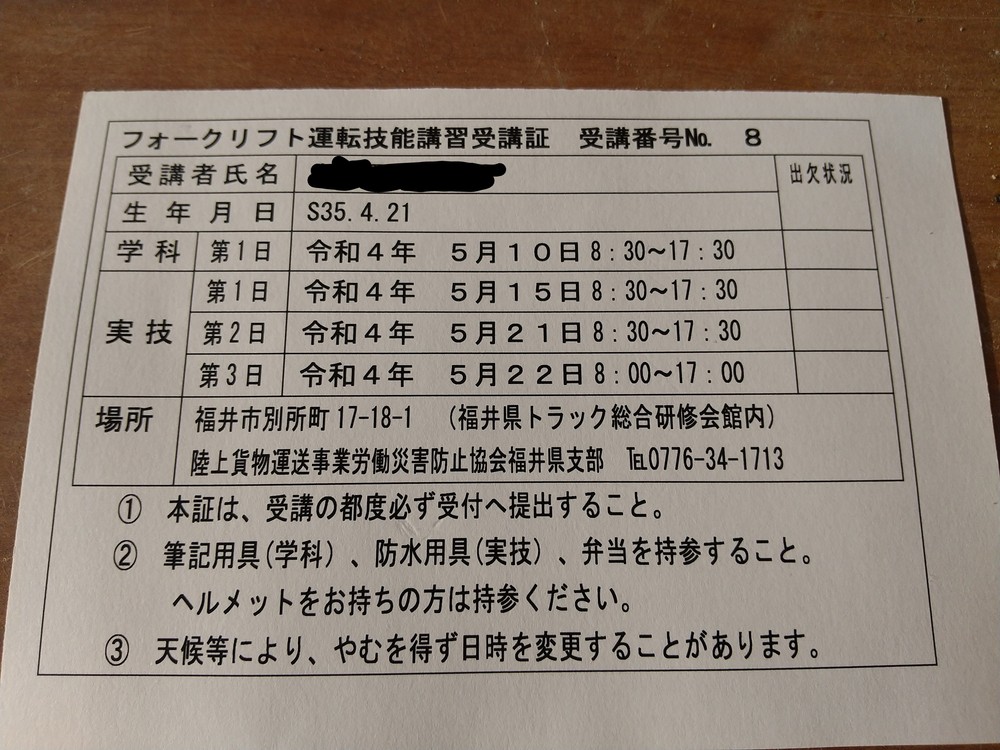 フォークリフト運転技能講習受講証 受講番号No. 8
受講者氏名 出欠状況
生年月日 S35.4.21
学科 第1日 令和4年 5月10日8:30~17:30
実技 第1日 令和4年 5月15日8:30~17:30
第2日 令和4年 5月21日8:30~17:30
第3日 令和4年 5月22日8:00~17:00
場所 福井市別所町17-18-1 (福井県トラック総合研修会館内)
陸上貨物運送事業労働災害防止協会福井県支部 ℡0776-34-1713
① 本証は、受講の都度必ず受付へ提出すること。
② 筆記用具(学科)、防水用具(実技)、弁当を持参すること。
ヘルメットをお持ちの方は持参ください。
③ 天候等により、やむを得ず日時を変更することがあります。